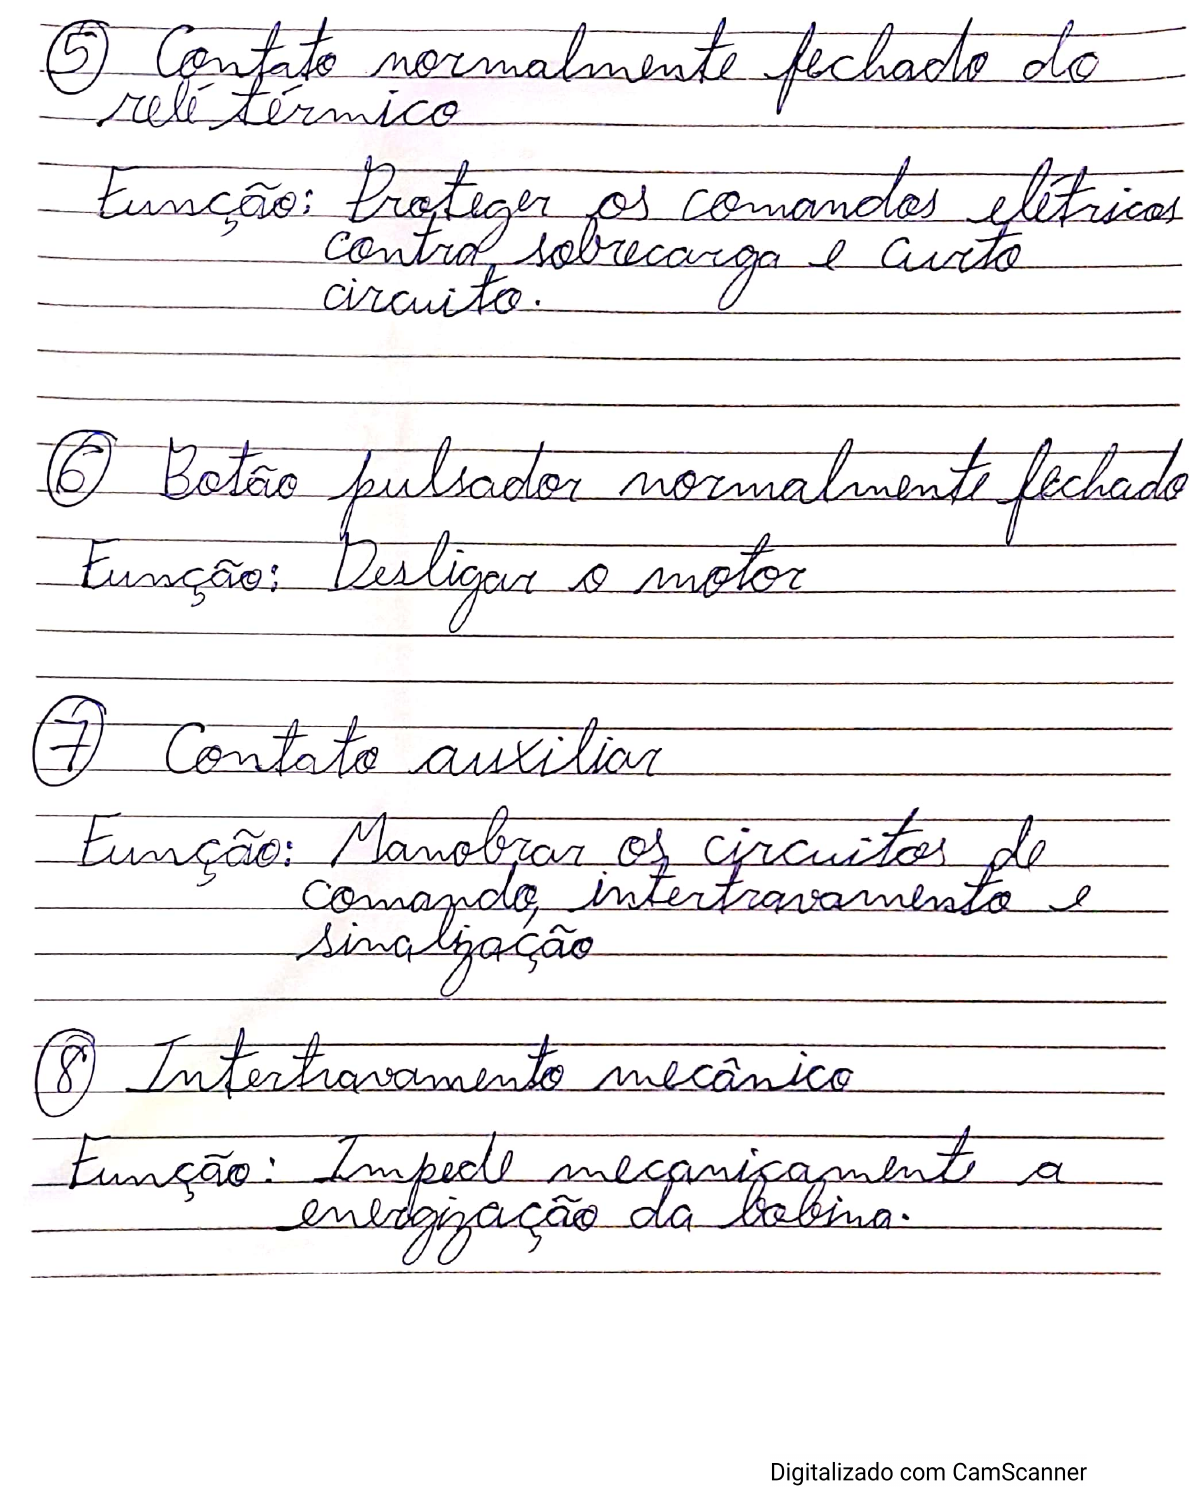 5 Contato normalmente fechado do
relé térmico
Função: Proteger os comandos elétricos
contra sobrecarga e curto
circuito.
6 Botão pulsador normalmente fechado
Função: Desligar o motor
7 Contato auxiliar
Função: Manobrar os circuitos de
comando, intertravamento e
sinalização
8 Intertravamento mecânico
Função: Impede mecanicamente a
energização da bobina.
Digitalizado com CamScanner